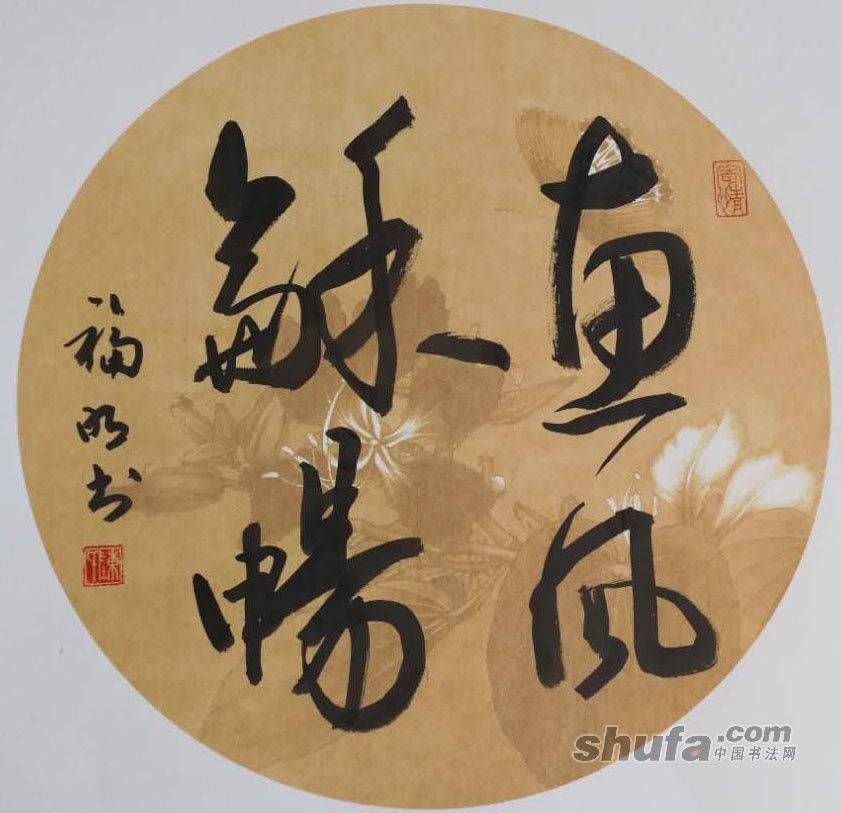 惠风
龢暢
福明书
shufa.com
中国书法网